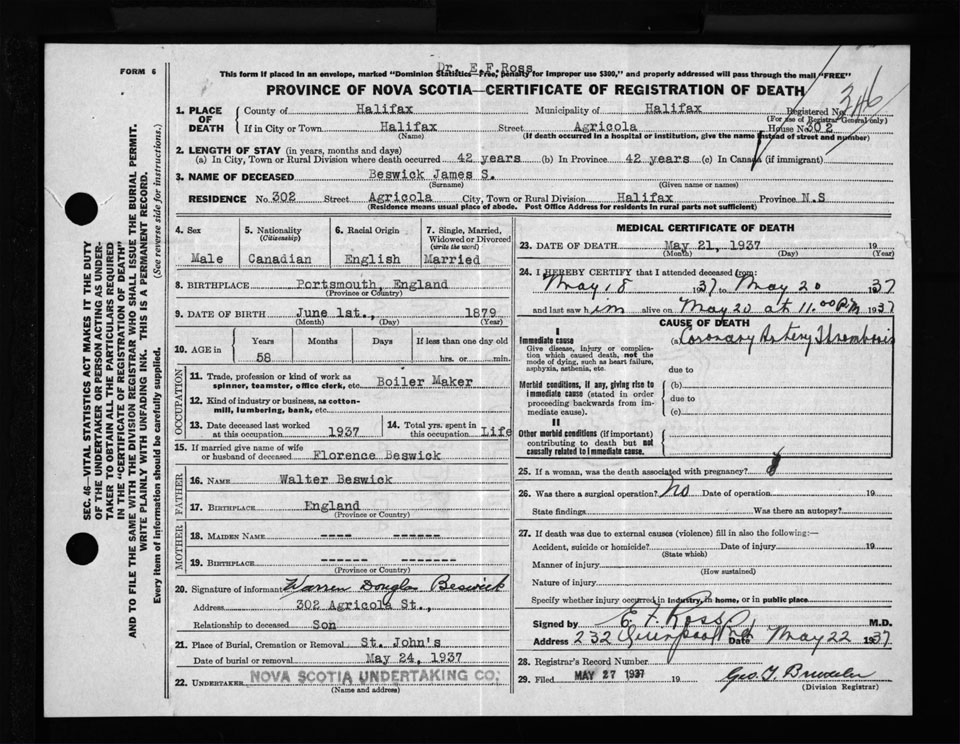 FORM 6
Dr. E.F.Ross
This form if placed in an envelope, marked "Dominion Statistics—Free, penalty for improper use $300," and properly addressed will pass through the mail "FREE"
PROVINCE OF NOVA SCOTIA—CERTIFICATE OF REGISTRATION OF DEATH
346
SEC. 46—VITAL STATISTICS ACT MAKES IT THE DUTY
OF THE UNDERTAKER OR PERSON ACTING AS UNDER-
TAKER TO OBTAIN ALL THE PARTICULARS REQUIRED
IN THE "CERTIFICATE OF REGISTRATION OF DEATH"
AND TO FILE THE SAME WITH THE DIVISION REGISTRAR WHO SHALL ISSUE THE BURIAL PERMIT.
WRITE PLAINLY WITH UNFADING INK. THIS IS A PERMANENT RECORD.
Every item of information should be carefully supplied. (See reverse side for instructions.)
1. PLACE OF DEATH
County of Halifax Municipality of Halifax Registered No.
(For use of Registrar General only)
If in City or Town Halifax Street Agricola House No. 302
(Name) (If death occurred in a hospital or institution, give the name instead of street and number)
2. LENGTH OF STAY (in years, months and days)
(a) In City, Town or Rural Division where death occurred 42 years (b) In Province 42 years (c) In Canada (if immigrant)
3. NAME OF DECEASED Beswick James S.
(Surname) (Given name or names)
RESIDENCE No. 302 Street Agricola City, Town or Rural Division Halifax Province N.S
(Residence means usual place of abode. Post Office Address for residents in rural parts not sufficient)
4. Sex Male
5. Nationality (Citizenship) Canadian
6. Racial Origin English
7. Single, Married, Widowed or Divorced (write the word) Married
8. BIRTHPLACE Portsmouth, England
(Province or Country)
9. DATE OF BIRTH June 1st., 1879
(Month) (Day) (Year)
10. AGE in Years Months Days If less than one day old
58 hrs. or min.
OCCUPATION
11. Trade, profession or kind of work as
spinner, teamster, office clerk, etc. Boiler Maker
12. Kind of industry or business, as cotton-
mill, lumbering, bank, etc.
13. Date deceased last worked
at this occupation 1937
14. Total yrs. spent in
this occupation Life
15. If married give name of wife
or husband of deceased Florence Beswick
FATHER
16. NAME Walter Beswick
17. BIRTHPLACE England
(Province or Country)
MOTHER
18. MAIDEN NAME ---- ------
19. BIRTHPLACE ------ -------
(Province or Country)
20. Signature of informant Warren Douglas Beswick
Address 302 Agricola St.,
Relationship to deceased Son
21. Place of Burial, Cremation or Removal St. John's
Date of burial or removal May 24, 1937
22. UNDERTAKER NOVA SCOTIA UNDERTAKING CO.
(Name and address)
MEDICAL CERTIFICATE OF DEATH
23. DATE OF DEATH May 21, 1937 19
(Month) (Day) (Year)
24. I HEREBY CERTIFY that I attended deceased from:
May 18 1937 to May 20 37
and last saw him alive on May 20 at 11.00 P.M 1937
CAUSE OF DEATH
I
Immediate cause (a) Coronary Artery Thrombosis
Give disease, injury or complica-
tion which caused death, not the
mode of dying, such as heart failure,
asphyxia, asthenia, etc.
due to
Morbid conditions, if any, giving rise to
immediate cause (stated in order
proceeding backwards from im-
mediate cause).
(b)
due to
(c)
II
Other morbid conditions (if important)
contributing to death but not
causally related to immediate cause.
25. If a woman, was the death associated with pregnancy?
26. Was there a surgical operation? No Date of operation 19
State findings Was there an autopsy?
27. If death was due to external causes (violence) fill in also the following:—
Accident, suicide or homicide? Date of injury 19
(State which)
Manner of injury
(How sustained)
Nature of injury
Specify whether injury occurred in Industry, in home, or in public place
Signed by E F Ross M.D.
Address 232 Date May 22 1937
28. Registrar's Record Number
29. Filed MAY 27 1937 19
(Division Registrar)